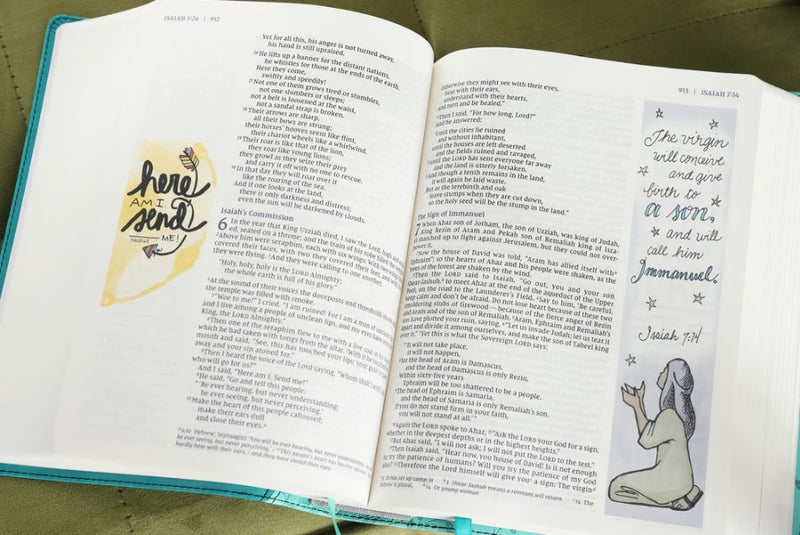 ISAIAH 5:26 | 912
Yet for all this, his anger is not turned away,
his hand is still upraised.
26 He lifts up a banner for the distant nations,
he whistles for those at the ends of the earth.
Here they come,
swiftly and speedily!
27 Not one of them grows tired or stumbles,
not one slumbers or sleeps;
not a belt is loosened at the waist,
not a sandal strap is broken.
28 Their arrows are sharp,
all their bows are strung;
their horses' hooves seem like flint,
their chariot wheels like a whirlwind.
29 Their roar is like that of the lion,
they roar like young lions;
they growl as they seize their prey
and carry it off with no one to rescue.
30 In that day they will roar over it
like the roaring of the sea.
And if one looks at the land,
there is only darkness and distress;
even the sun will be darkened by clouds.
here
AM I
send
ISAIAH 6:8
ME!
Isaiah's Commission
6 In the year that King Uzziah died, I saw the Lord, high and
ed, seated on a throne; and the train of his robe filled the
2 Above him were seraphim, each with six wings: With two wings
covered their faces, with two they covered their feet, and with
they were flying. 3 And they were calling to one another:
"Holy, holy, holy is the LORD Almighty;
the whole earth is full of his glory."
4 At the sound of their voices the doorposts and thresholds
the temple was filled with smoke.
5 "Woe to me!" I cried. "I am ruined! For I am a man of unclean
and I live among a people of unclean lips, and my eyes have
King, the LORD Almighty."
6 Then one of the seraphim flew to me with a live coal in
which he had taken with tongs from the altar. 7 With it he touched
mouth and said, "See, this has touched your lips; your guilt is
away and your sin atoned for."
8 Then I heard the voice of the Lord saying, "Whom shall I
who will go for us?"
And I said, "Here am I. Send me!"
9 He said, "Go and tell this people:
"'Be ever hearing, but never understanding;
be ever seeing, but never perceiving.'
10 Make the heart of this people calloused;
make their ears dull
and close their eyes.a
a 9,10 Hebrew; Septuagint 'You will be ever hearing, but never understanding;
be ever seeing, but never perceiving.' / 10 This people's heart has become
hardly hear with their ears, / and they have closed their eyes
913 | ISAIAH 7:14
Otherwise they might see with their eyes,
hear with their ears,
understand with their hearts,
and turn and be healed."
11 Then I said, "For how long, Lord?"
And he answered:
"Until the cities lie ruined
and without inhabitant,
until the houses are left deserted
and the fields ruined and ravaged,
12 until the LORD has sent everyone far away
and the land is utterly forsaken.
13 And though a tenth remains in the land,
it will again be laid waste.
But as the terebinth and oak
leave stumps when they are cut down,
so the holy seed will be the stump in the land."
The Sign of Immanuel
7 When Ahaz son of Jotham, the son of Uzziah, was king of Judah,
King Rezin of Aram and Pekah son of Remaliah king of Isra-
el marched up to fight against Jerusalem, but they could not over-
power it.
2 Now the house of David was told, "Aram has allied itself with
Ephraim"; so the hearts of Ahaz and his people were shaken, as the
trees of the forest are shaken by the wind.
3 Then the LORD said to Isaiah, "Go out, you and your son
Shear-Jashub, to meet Ahaz at the end of the aqueduct of the Upper
Pool, on the road to the Launderer's Field. 4 Say to him, 'Be careful,
keep calm and don't be afraid. Do not lose heart because of these two
smoldering stubs of firewood — because of the fierce anger of Rezin
and Aram and of the son of Remaliah. 5 Aram, Ephraim and Remaliah's
son have plotted your ruin, saying, 6 "Let us invade Judah; let us tear it
apart and divide it among ourselves, and make the son of Tabeel king
over it." 7 Yet this is what the Sovereign LORD says:
"'It will not take place,
it will not happen,
8 for the head of Aram is Damascus,
and the head of Damascus is only Rezin.
Within sixty-five years
Ephraim will be too shattered to be a people.
9 The head of Ephraim is Samaria,
and the head of Samaria is only Remaliah's son.
If you do not stand firm in your faith,
you will not stand at all.'"
10 Again the LORD spoke to Ahaz, 11 "Ask the LORD your God for a sign,
whether in the deepest depths or in the highest heights."
12 But Ahaz said, "I will not ask; I will not put the LORD to the test."
13 Then Isaiah said, "Hear now, you house of David! Is it not enough
to try the patience of humans? Will you try the patience of my God
also? 14 Therefore the Lord himself will give you a sign: The virgin
a 2 Or has set up camp in
b 3 Shear-Jashub means a remnant will return.
14 The
Hebrew is plural.
14 Or young woman
The virgin
will conceive
and give
birth to
a son,
and will
call him
Immanuel.
Isaiah 7:14